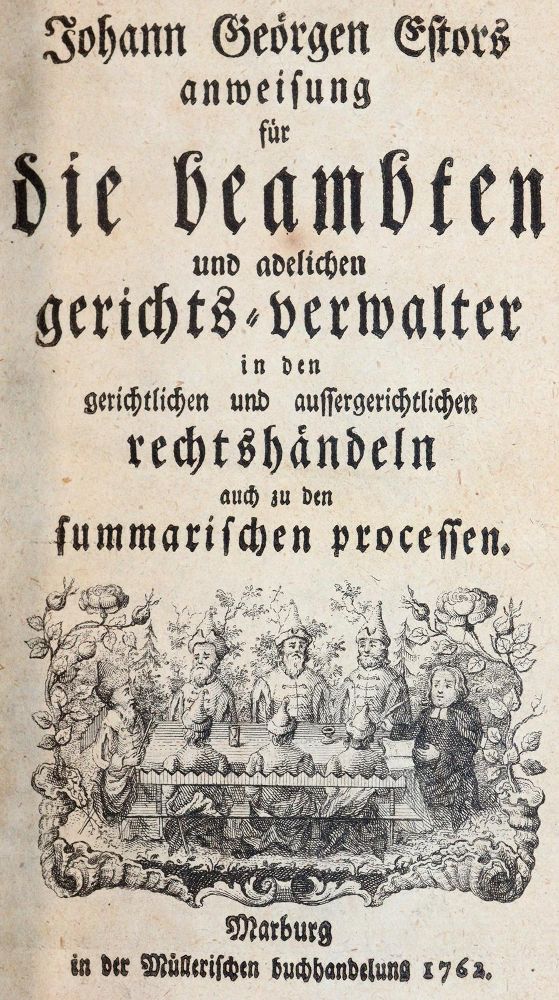 Johann Geörgen Estors
anweisung
für
die beambten
und adelichen
gerichts-verwalter
in den
gerichtlichen und aussergerichtlichen
rechtshändeln
auch zu den
summarischen processen.
Marburg
in der Müllerischen buchhandelung 1762.